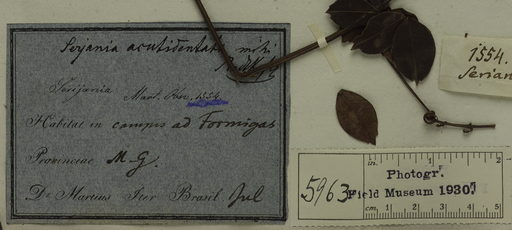 Serjania acutidentata mihi
Serjania Mart. Obs. 1554
Habitat in campis ad Formigas
Provinciae M. G.
De Martius Iter Brasil Jul
1554.
Serian
5963
Photogr.
Field Museum 1930.
in. 1 2
cm. 1 2 3 4 5